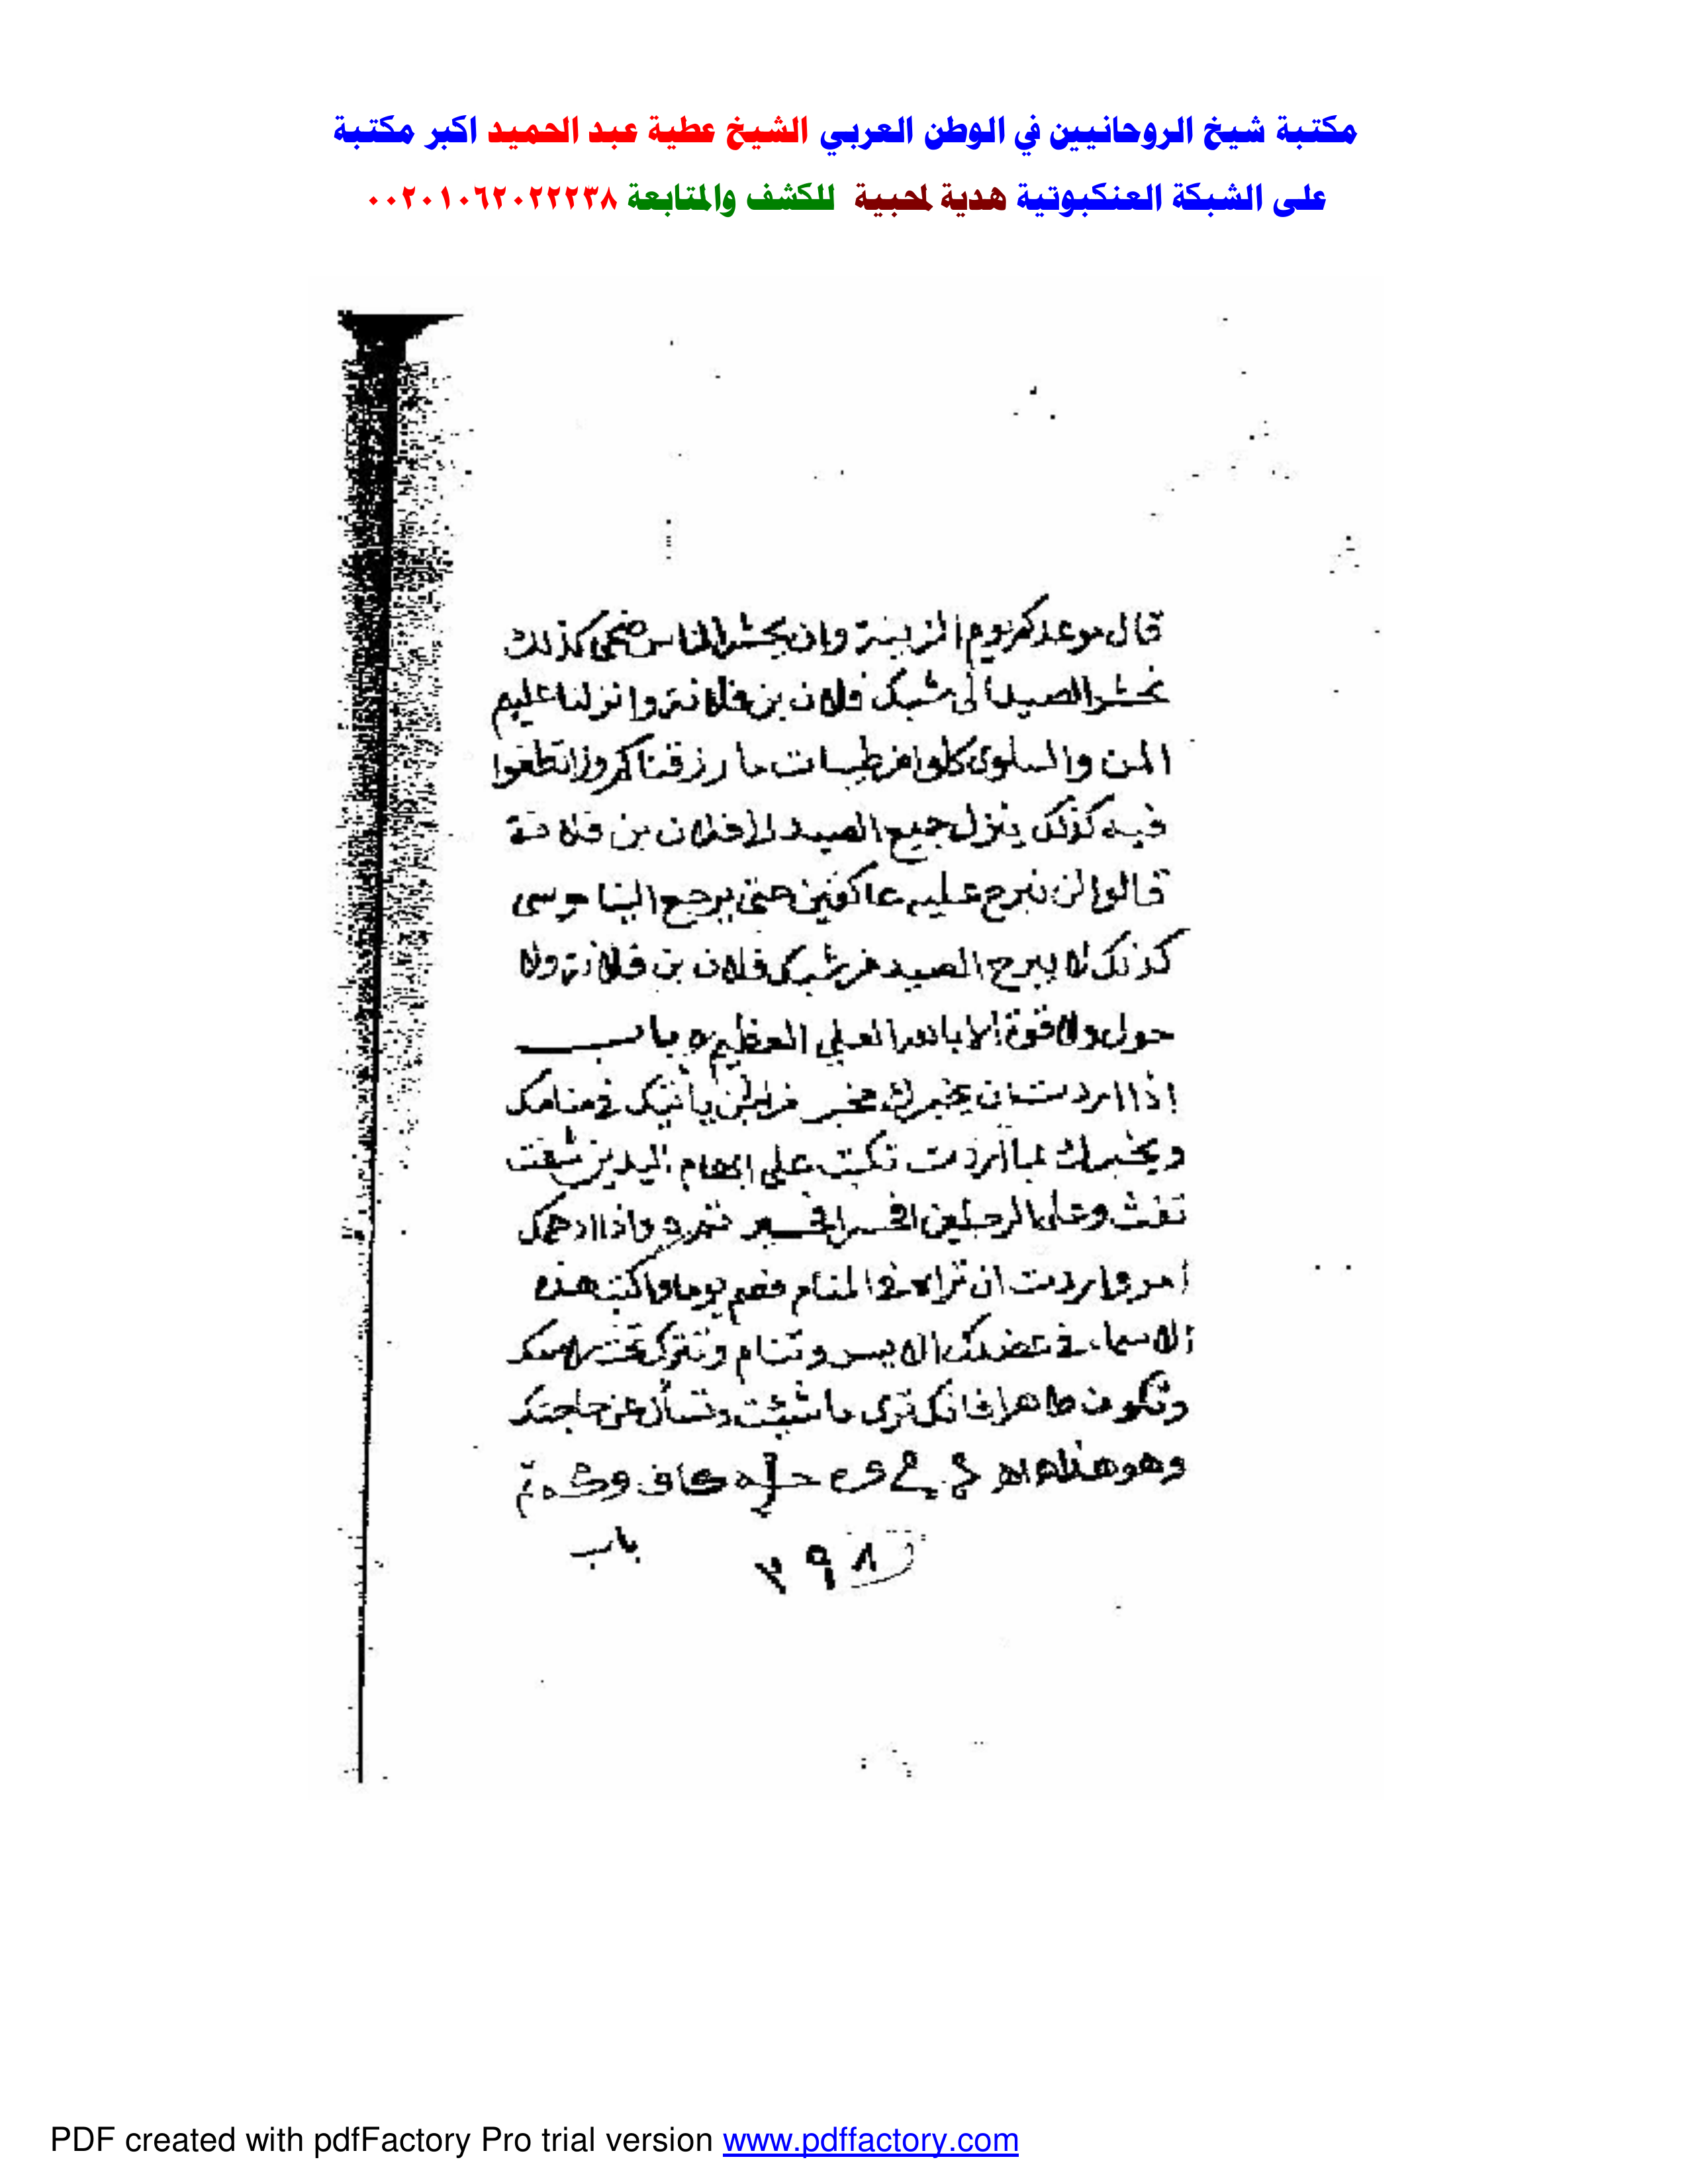 مكتبة شيخ الروحانيين في الوطن العربي الشيخ عطية عبد الحميد اكبر مكتبة
على الشبكة العنكبوتية هدية لمحبية للكشف والمتابعة ٠٠٢٠١٠٦٢٠٢٢٢٣٨
قال موعدكم يوم الزينة وان يحشر الناس ضحى كذلك
نحشر الصيد الى شبك فلان بن فلانة وانزلنا عليهم
المن والسلوى كلوا من طيبات ما رزقناكم ولا تطغوا
فيه كذلك ينزل جميع الصيد الى فلان بن فلانة
قالوا لن نبرح عليه عاكفين حتى يرجع الينا موسى
كذلك لا يبرح الصيد من شبك فلان بن فلانة ولا
حول ولا قوة الا بالله العلى العظيم ه باب
اذا اردت ان يخبرك مخبر من الجن يأتيك في منامك
ويخبرك بما اردت تكتب على ابهام اليدين
وعلى الرجلين واذا ادهمك
امر واردت ان تراه في المنام فصم يوما واكتب هذه
الاسماء في عضدك الايسر وتنام وتترك تحت راسك
وتكون طاهرا فانك ترى ما شئت وتسأل عن حاجتك
وهو هذا
٣٩٨ باب
PDF created with pdfFactory Pro trial version www.pdffactory.com